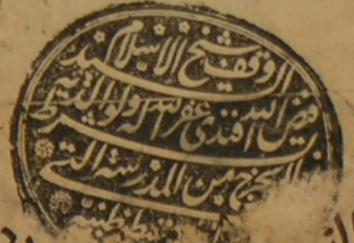 وقف شيخ الاسلام السيد
فيض الله افندى غفر الله له ولوالديه
بشرط ان لا يخرج من المدرسة التى
بقسطنطينية